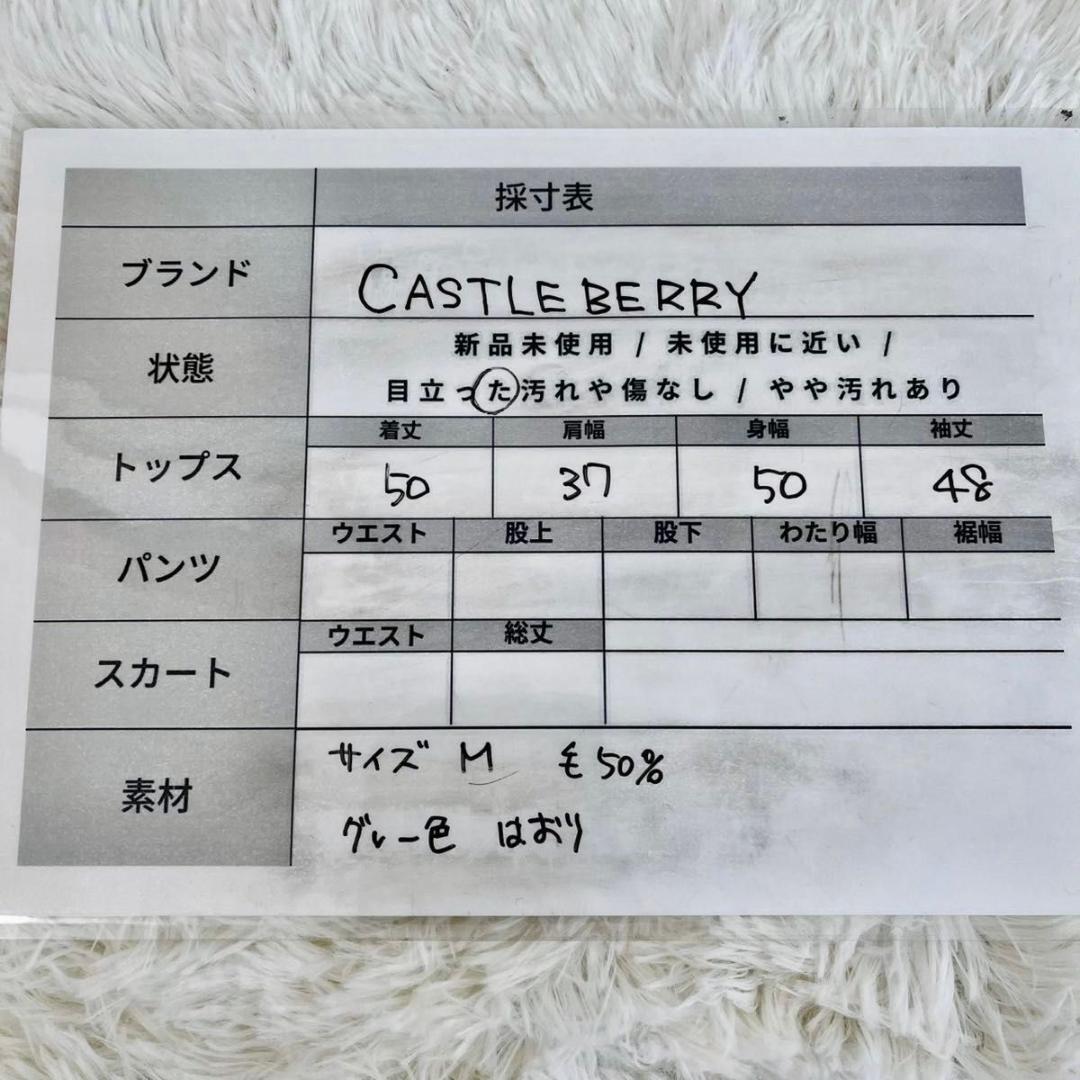 採寸表
ブランド CASTLE BERRY
状態 新品未使用 / 未使用に近い /
目立った汚れや傷なし / やや汚れあり
トップス 着丈 肩幅 身幅 袖丈
50 37 50 48
パンツ ウエスト 股上 股下 わたり幅 裾幅
スカート ウエスト 総丈
素材 サイズ M 毛50%
グレー色 はおり